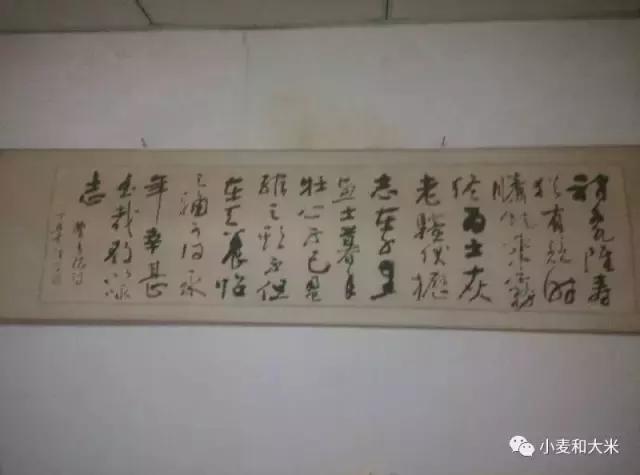 神龜雖壽
猶有竟时
騰蛇乘霧
终为土灰
老驥伏櫪
志在千里
烈士暮年
壮心不已盈
缩之期不但
在天養怡
之福可得永
年幸甚
至哉歌以詠
志
小麦和大米